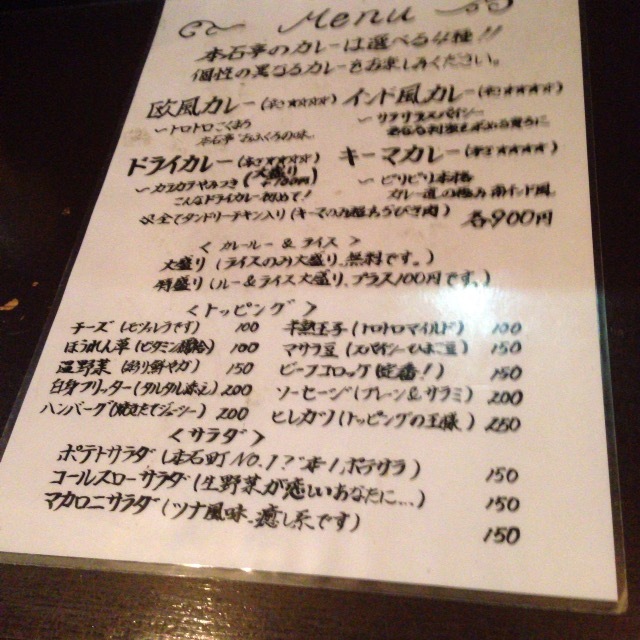 Menu
本石亭のカレーは選べる4種!!
個性の異なるカレーをお楽しみください。
欧風カレー インド風カレー
〜トロトロこくまろ 〜リアリスパイシー
本石亭 おふくろの味
ドライカレー キーマカレー
大盛り
〜カラカラやみつき 〜ピリピリ本格
こんなドライカレー初めて! カレー通の極み 南インド風
※全てタンドリーチキン入り(キーマのみ粗あらびき肉) 各900円
<カレールー&ライス>
大盛り(ライスのみ大盛り、無料です。)
特盛り(ルー&ライス大盛り、プラス100円です。)
<トッピング>
チーズ(とろ〜りです) 100 半熟玉子(トロトロマイルド) 100
ほうれん草(ビタミン補給) 100 マサラ豆(スパイシーひよこ豆) 150
温野菜(彩り鮮やか) 150 ビーフコロッケ(定番!) 150
白身フリッター(タルタル添え) 200 ソーセージ(プレーン&サラミ) 200
ハンバーグ(焼きたてジューシー) 200 ヒレカツ(トッピングの王様) 250
<サラダ>
ポテトサラダ(本石町NO.1?本1.ポテサラ) 150
コールスローサラダ(生野菜が恋しいあなたに...) 150
マカロニサラダ(ツナ風味、癒し系です) 150